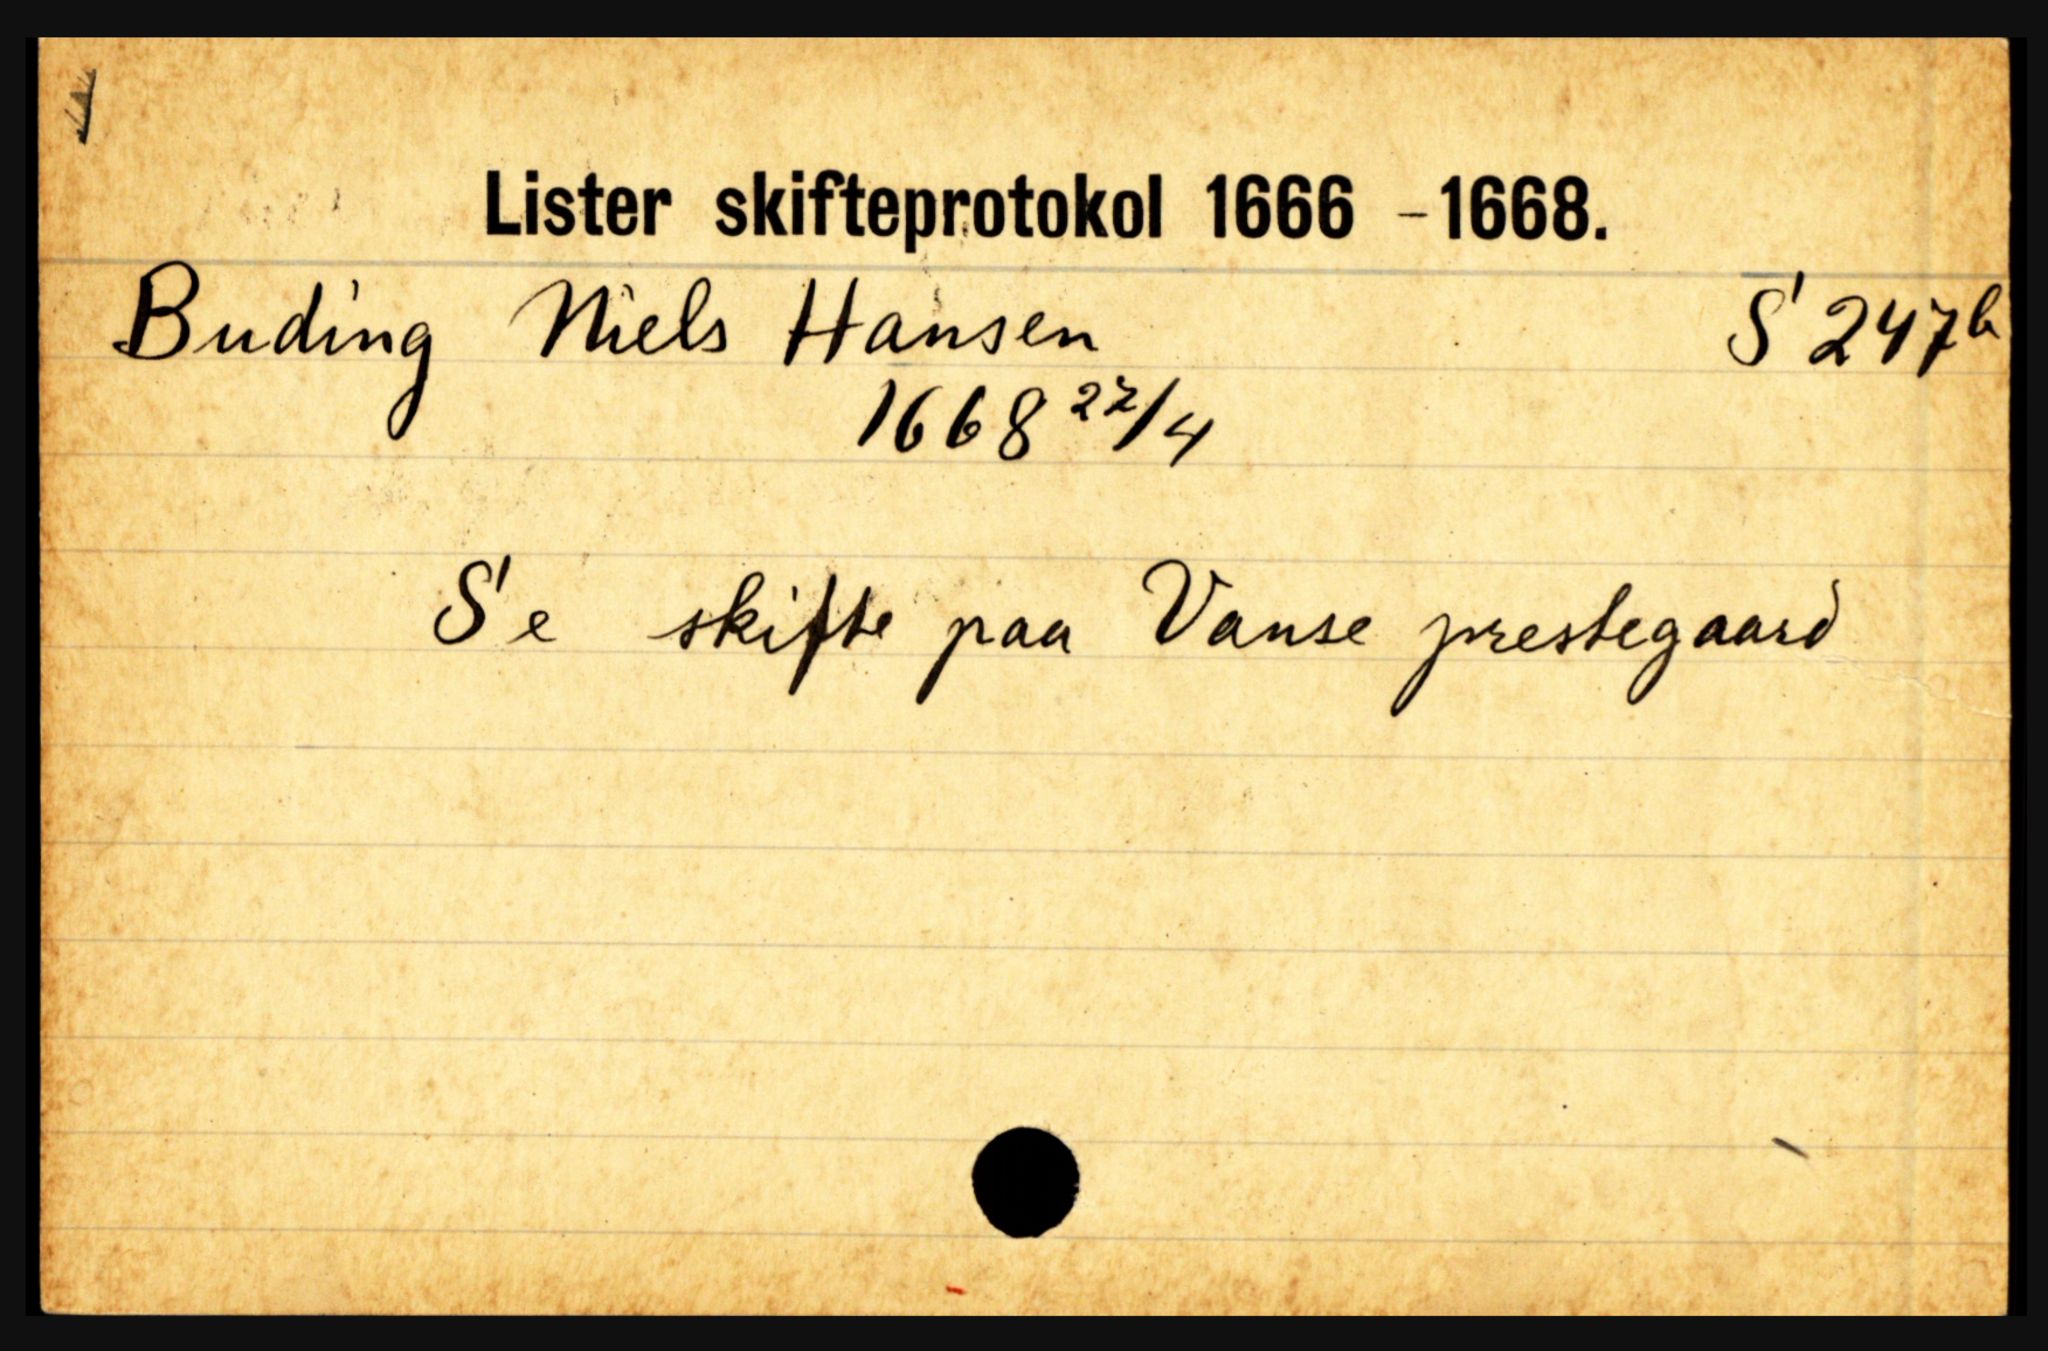 Lister skifteprotokol 1666 - 1668.
Buding Niels Hansen S 247b
1668 27/4
Se skifte paa Vanse prestegaard